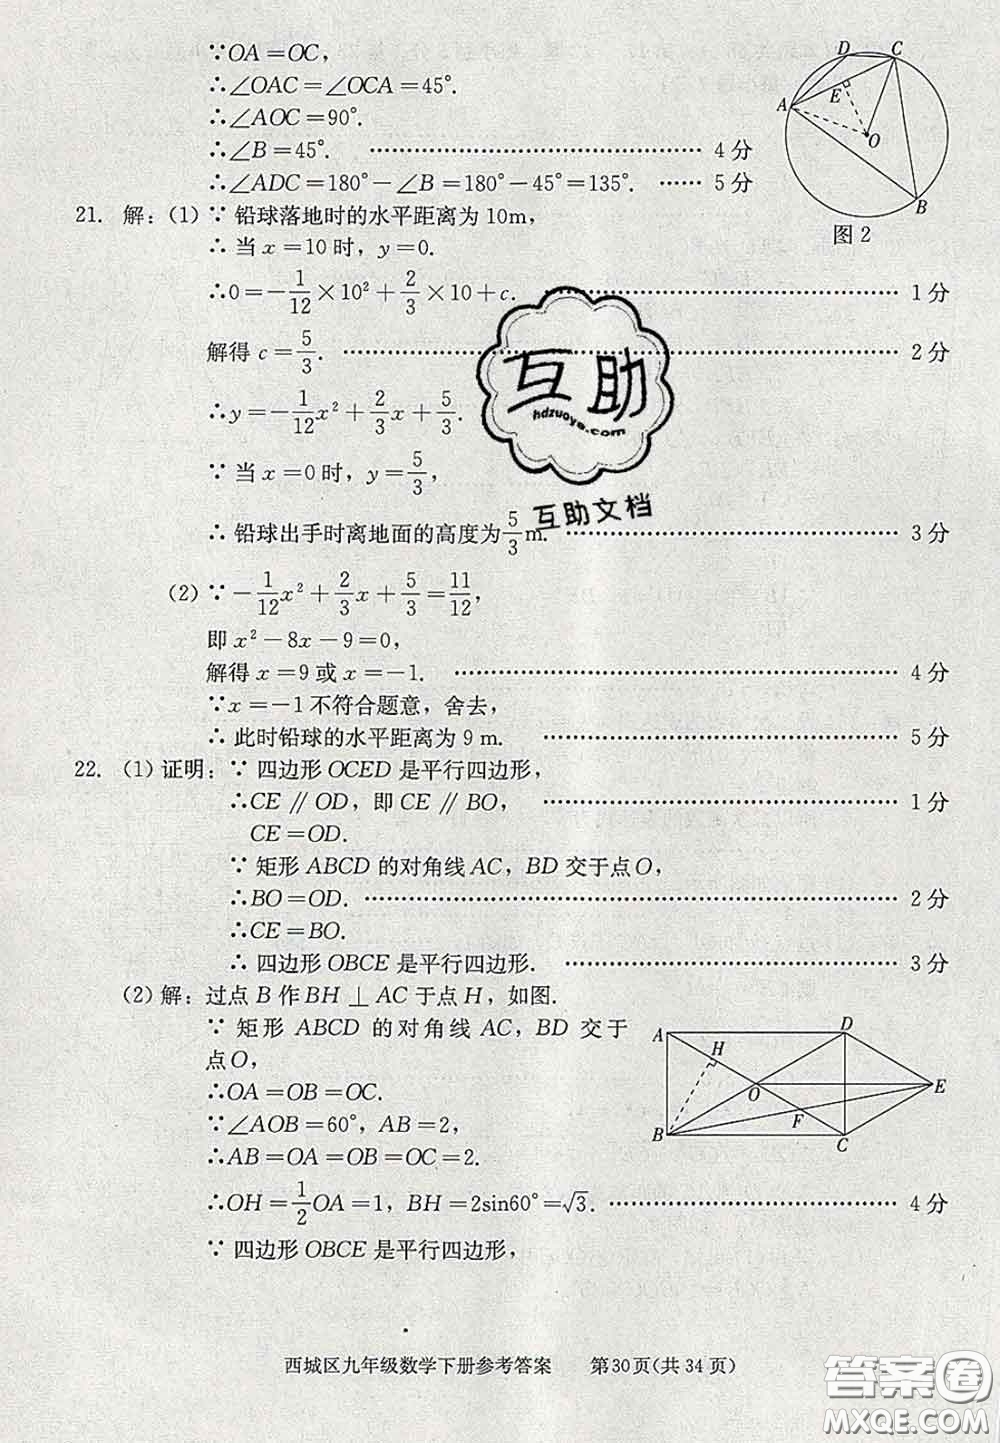 ∵OA=OC,
∴∠OAC=∠OCA=45°.
∴∠AOC=90°.
∴∠B=45°. …… 4分
∴∠ADC=180°-∠B=180°-45°=135°. …… 5分
D C
E
A
O
B
图2
21. 解：(1)∵ 铅球落地时的水平距离为10m，
∴ 当x=10时，y=0.
∴0=-1/12×10²+2/3×10+c. …… 1分
解得c=5/3. …… 2分
∴y=-1/12x²+2/3x+5/3.
∵ 当x=0时，y=5/3，
∴ 铅球出手时离地面的高度为5/3m. …… 3分
互助
hdzuoye.com
互助文档
(2)∵-1/12x²+2/3x+5/3=11/12，
即x²-8x-9=0，
解得x=9或x=-1. …… 4分
∵x=-1不符合题意，舍去，
∴ 此时铅球的水平距离为9 m. …… 5分
22. (1)证明：∵ 四边形OCED是平行四边形，
∴CE∥OD，即CE∥BO， …… 1分
CE=OD.
∵ 矩形ABCD的对角线AC，BD交于点O，
∴BO=OD. …… 2分
∴CE=BO.
∴ 四边形OBCE是平行四边形. …… 3分
(2)解：过点B作BH⊥AC于点H，如图.
∵ 矩形ABCD的对角线AC，BD交于
点O，
∴OA=OB=OC.
∵∠AOB=60°，AB=2，
∴AB=OA=OB=OC=2.
∴OH=1/2OA=1，BH=2sin60°=√3. …… 4分
∵ 四边形OBCE是平行四边形，
A D
H
O E
F
B C
西城区九年级数学下册参考答案 第30页(共34页)
答案圈
MXQE.COM